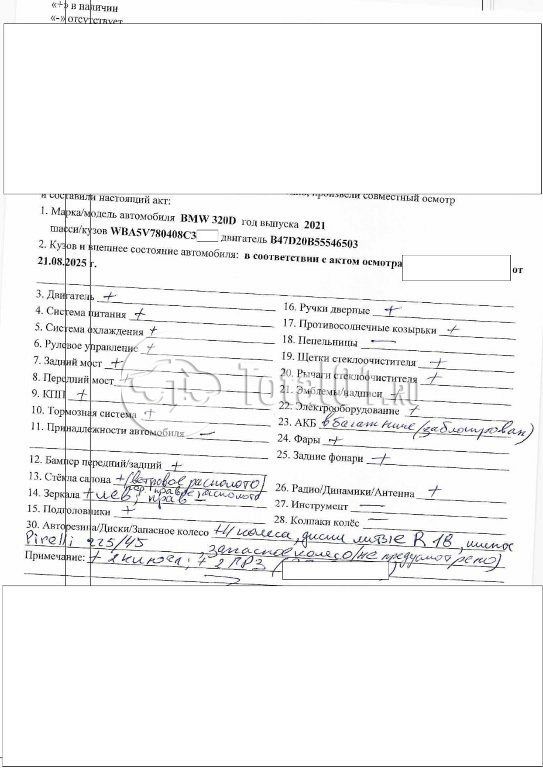 «+» в наличии
«-» отсутствует
и составили настоящий акт: произвели совместный осмотр
1. Марка/модель автомобиля BMW 320D год выпуска 2021
шасси/кузов WBA5V780408C3 двигатель B47D20B55546503
2. Кузов и внешнее состояние автомобиля: в соответствии с актом осмотра от
21.08.2025 г.
3. Двигатель +
4. Система питания +
5. Система охлаждения +
6. Рулевое управление +
7. Задний мост +
8. Передний мост +
9. КПП +
10. Тормозная система +
11. Принадлежности автомобиля —
12. Бампер передний/задний +
13. Стёкла салона + (ветровое расколото)
пер правое расколото
14. Зеркала + лев, прав —
15. Подголовники +
16. Ручки дверные +
17. Противосолнечные козырьки +
18. Пепельницы —
19. Щетки стеклоочистителя +
20. Рычаги стеклоочистителя +
21. Эмблемы/надписи
22. Электрооборудование +
23. АКБ в багажнике (заблокирован)
24. Фары +
25. Задние фонари +
26. Радио/Динамики/Антенна +
27. Инструмент —
28. Колпаки колёс —
30. Авторезина/Диски/Запасное колесо +4 колеса, диски литые R 18, шины
Pirelli 225/45 запасное колесо (не предусмотрено)
Примечание: + 2 ключа; + 2 ГРЗ (
Total01.RU